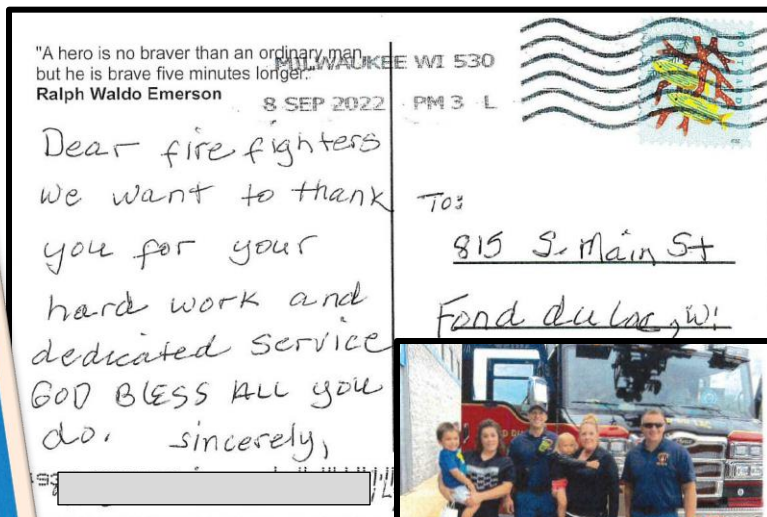 "A hero is no braver than an ordinary man,
but he is brave five minutes longer."
Ralph Waldo Emerson
MILWAUKEE WI 530
8 SEP 2022 PM 3 L
Dear fire fighters
we want to thank
you for your
hard work and
dedicated service
GOD BLESS ALL you
do. sincerely,
To:
815 S. Main St
Fond du Lac, Wi